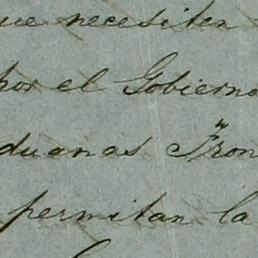 que necesiten
por el Gobierno
duanas Fron
permitan la